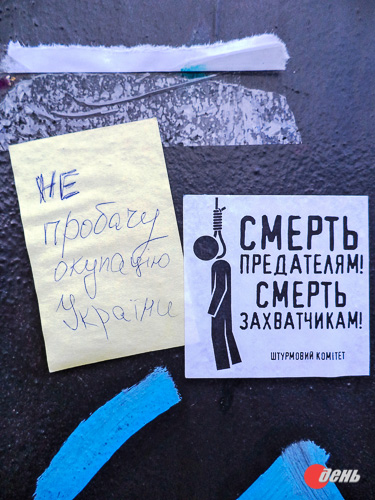 НЕ
пробачу
окупацію
України
СМЕРТЬ
ПРЕДАТЕЛЯМ!
СМЕРТЬ
ЗАХВАТЧИКАМ!
ШТУРМОВИЙ КОМІТЕТ
день